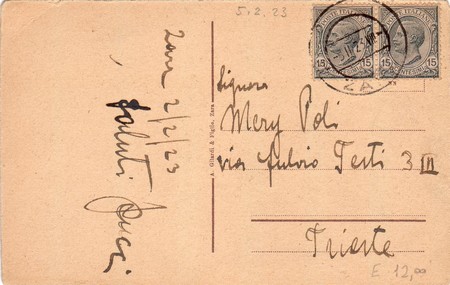 5.2.23
Zara 2/2/23
Saluti
POSTE ITALIANE POSTE ITALIANE
15 15 15
ZA
A. Gilardi & Figlio, Zara
Signora
Mery Poli
via Fulvio Testi 3 III
Trieste
E 12,00